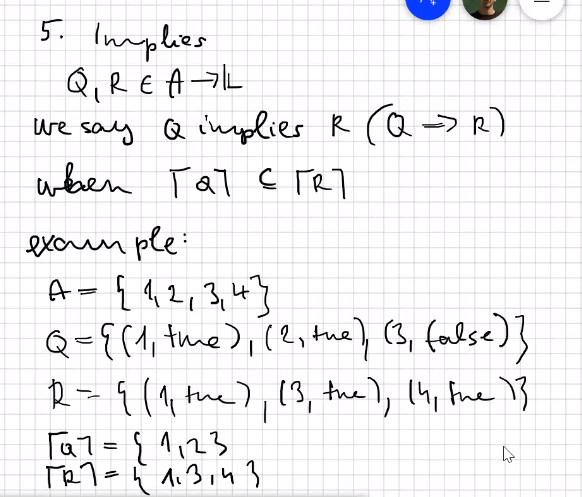 5. Implies
Q, R ∈ A → 𝕃
we say Q implies R (Q => R)
when ⌈Q⌉ ⊆ ⌈R⌉
example:
A = { 1, 2, 3, 4 }
Q = {(1, true), (2, true), (3, false)}
R = {(1, true), (3, true), (4, true)}
⌈Q⌉ = { 1, 2 }
⌈R⌉ = { 1, 3, 4 }